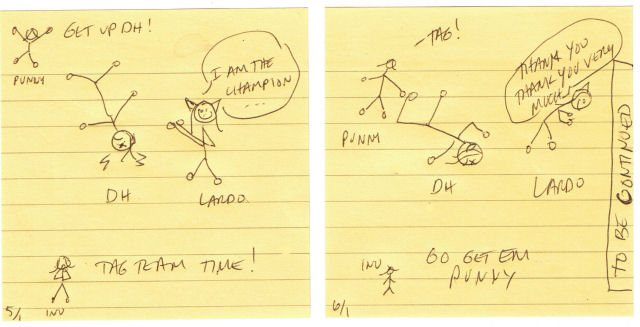 GET UP DH!
PUNNY
I AM THE
CHAMPION
...
DH
LARDO
TAG TEAM TIME!
INU
5/1
-TAG!
THANK YOU
THANK YOU VERY
MUCH
PUNNY
DH
LARDO
INU
GO GET EM
PUNNY
TO BE CONTINUED
6/1